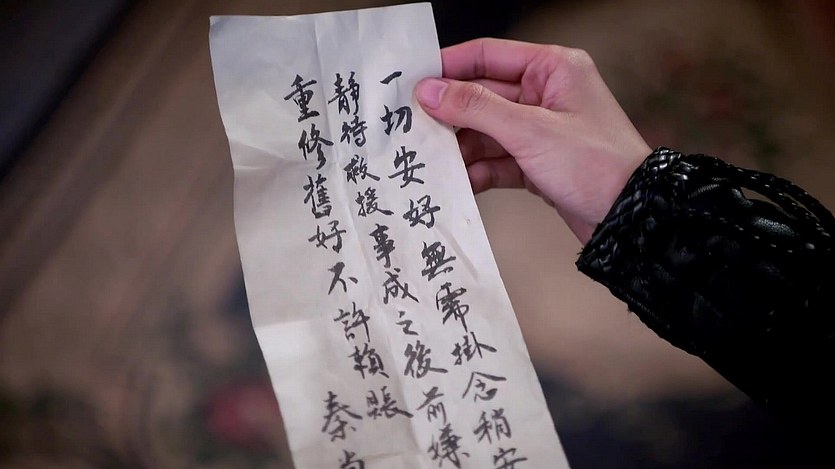 一切安好無需掛念稍安
靜待救援事成之後前嫌
重修舊好不許賴賬
秦